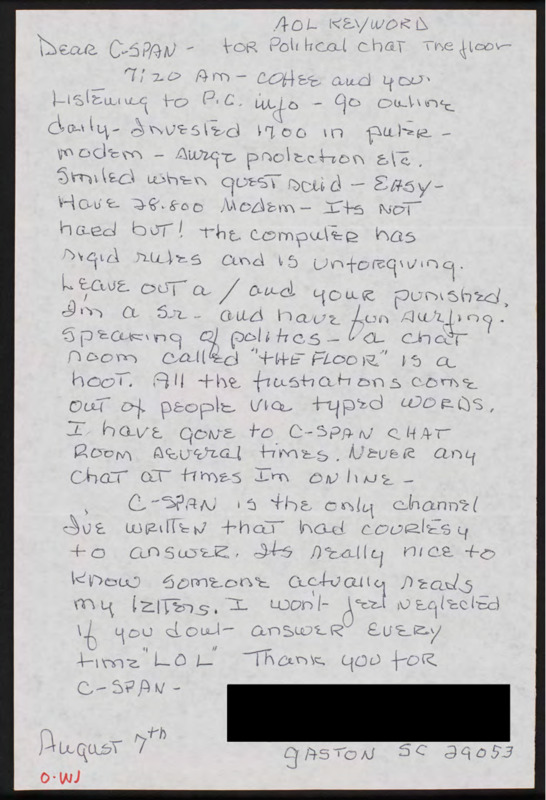 AOL KEYWORD
DEAR C-SPAN - FOR Political chat The floor
7:20 AM - COFFEE and you.
Listening to P.C. info - go online
daily - Invested 1700 in puter -
modem - surge protection etc.
Smiled when guest said - EASY -
Have 28.800 Modem - Its NOT
hard but! The computer has
rigid rules and is unforgiving.
Leave out a / and your punished.
I'm a SR - and have fun surfing.
Speaking of politics - a chat
room called "THE FLOOR" is a
hoot. All the frustrations come
out of people via typed WORDS.
I have gone to C-SPAN CHAT
ROOM several times. NEVER any
chat at times Im ONLINE -
C-SPAN is the only channel
I've WRITTEN that had courtesy
to answer. Its really nice to
know someone actually reads
my letters. I won't feel neglected
if you don't answer EVERY
time "LOL" Thank you for
C-SPAN -
August 7th
GASTON SC 29053
O.WJ